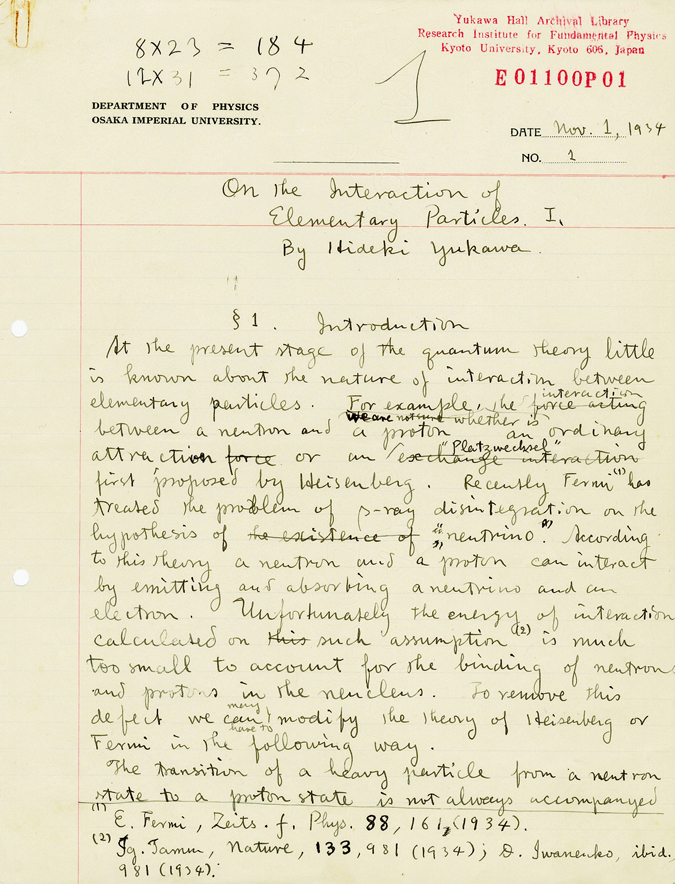 8×23 = 184
12×31 = 372
1
Yukawa Hall Archival Library
Research Institute for Fundamental Physics
Kyoto University, Kyoto 606, Japan
E01100P01
DEPARTMENT OF PHYSICS
OSAKA IMPERIAL UNIVERSITY.
DATE Nov. 1, 1934
NO. 1
On the Interaction of
Elementary Particles. I.
By Hideki Yukawa.
§1. Introduction
At the present stage of the quantum theory little
is known about the nature of interaction between
interaction
elementary particles. For example, the force acting
we are not sure whether is
between a neutron and a proton an ordinary
"Platzwechsel"
attraction force or an exchange interaction
first proposed by Heisenberg. Recently Fermi(1) has
treated the problem of β-ray disintegration on the
hypothesis of the existence of "neutrino". According
to this theory a neutron and a proton can interact
by emitting and absorbing a neutrino and an
electron. Unfortunately the energy of interaction
calculated on this such assumption(2) is much
too small to account for the binding of neutrons
and protons in the neucleus. To remove this
may
defect we can modify the theory of Heisenberg or
have to
Fermi in the following way.
The transition of a heavy particle from a neutron
state to a proton state is not always accompanyed
(1) E. Fermi, Zeits. f. Phys. 88, 161, (1934).
(2) Ig. Tamm, Nature, 133, 981 (1934); D. Iwanenko, ibid.
981 (1934).